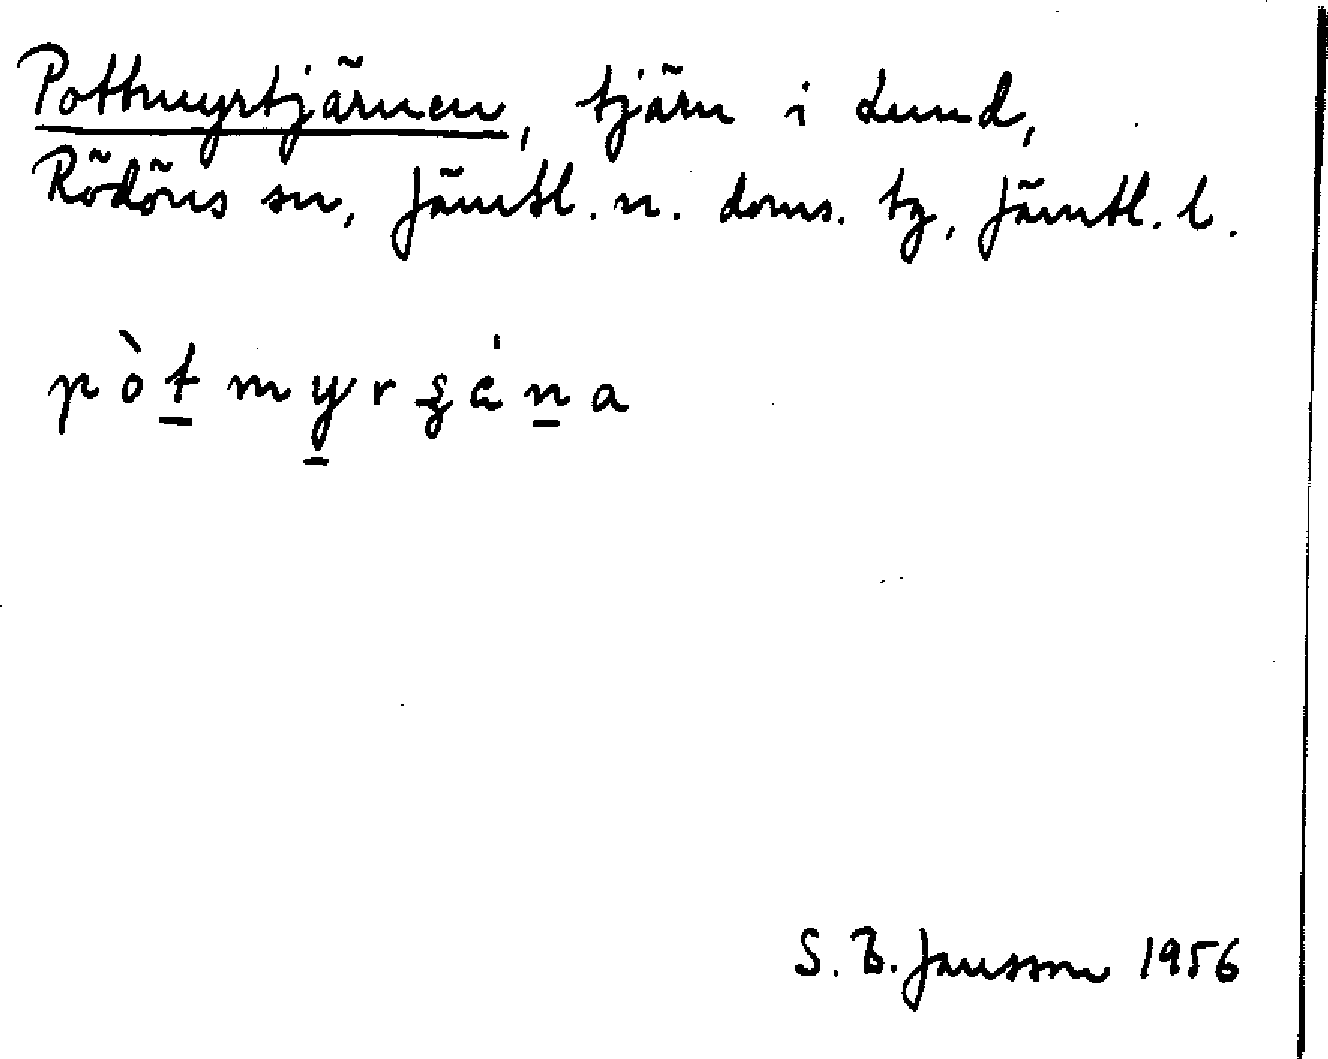 Pottmyrtjärnen, tjärn i Lund,
Rödöns sn, Jämtl. n. doms. tg, Jämtl. l.
S. B. Jansson 1956